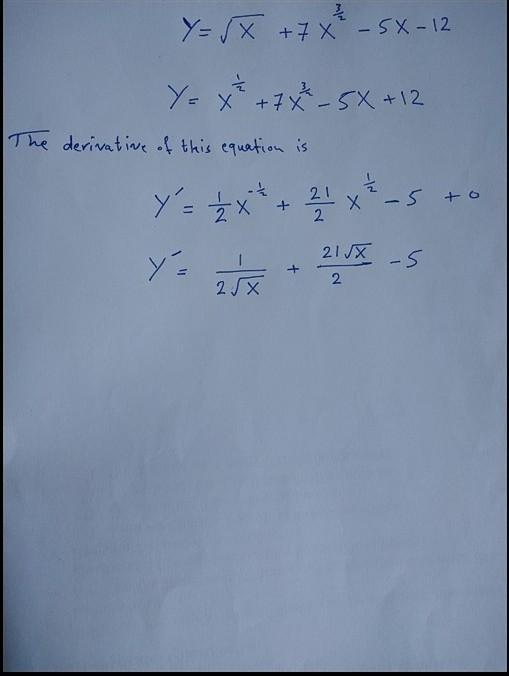 Y = √x + 7x^(3/2) - 5x - 12
Y = x^(1/2) + 7x^(3/2) - 5x + 12
The derivative of this equation is
Y′ = 1/2 x^(-1/2) + 21/2 x^(1/2) - 5 + 0
Y′ = 1/(2√x) + 21√x/2 - 5